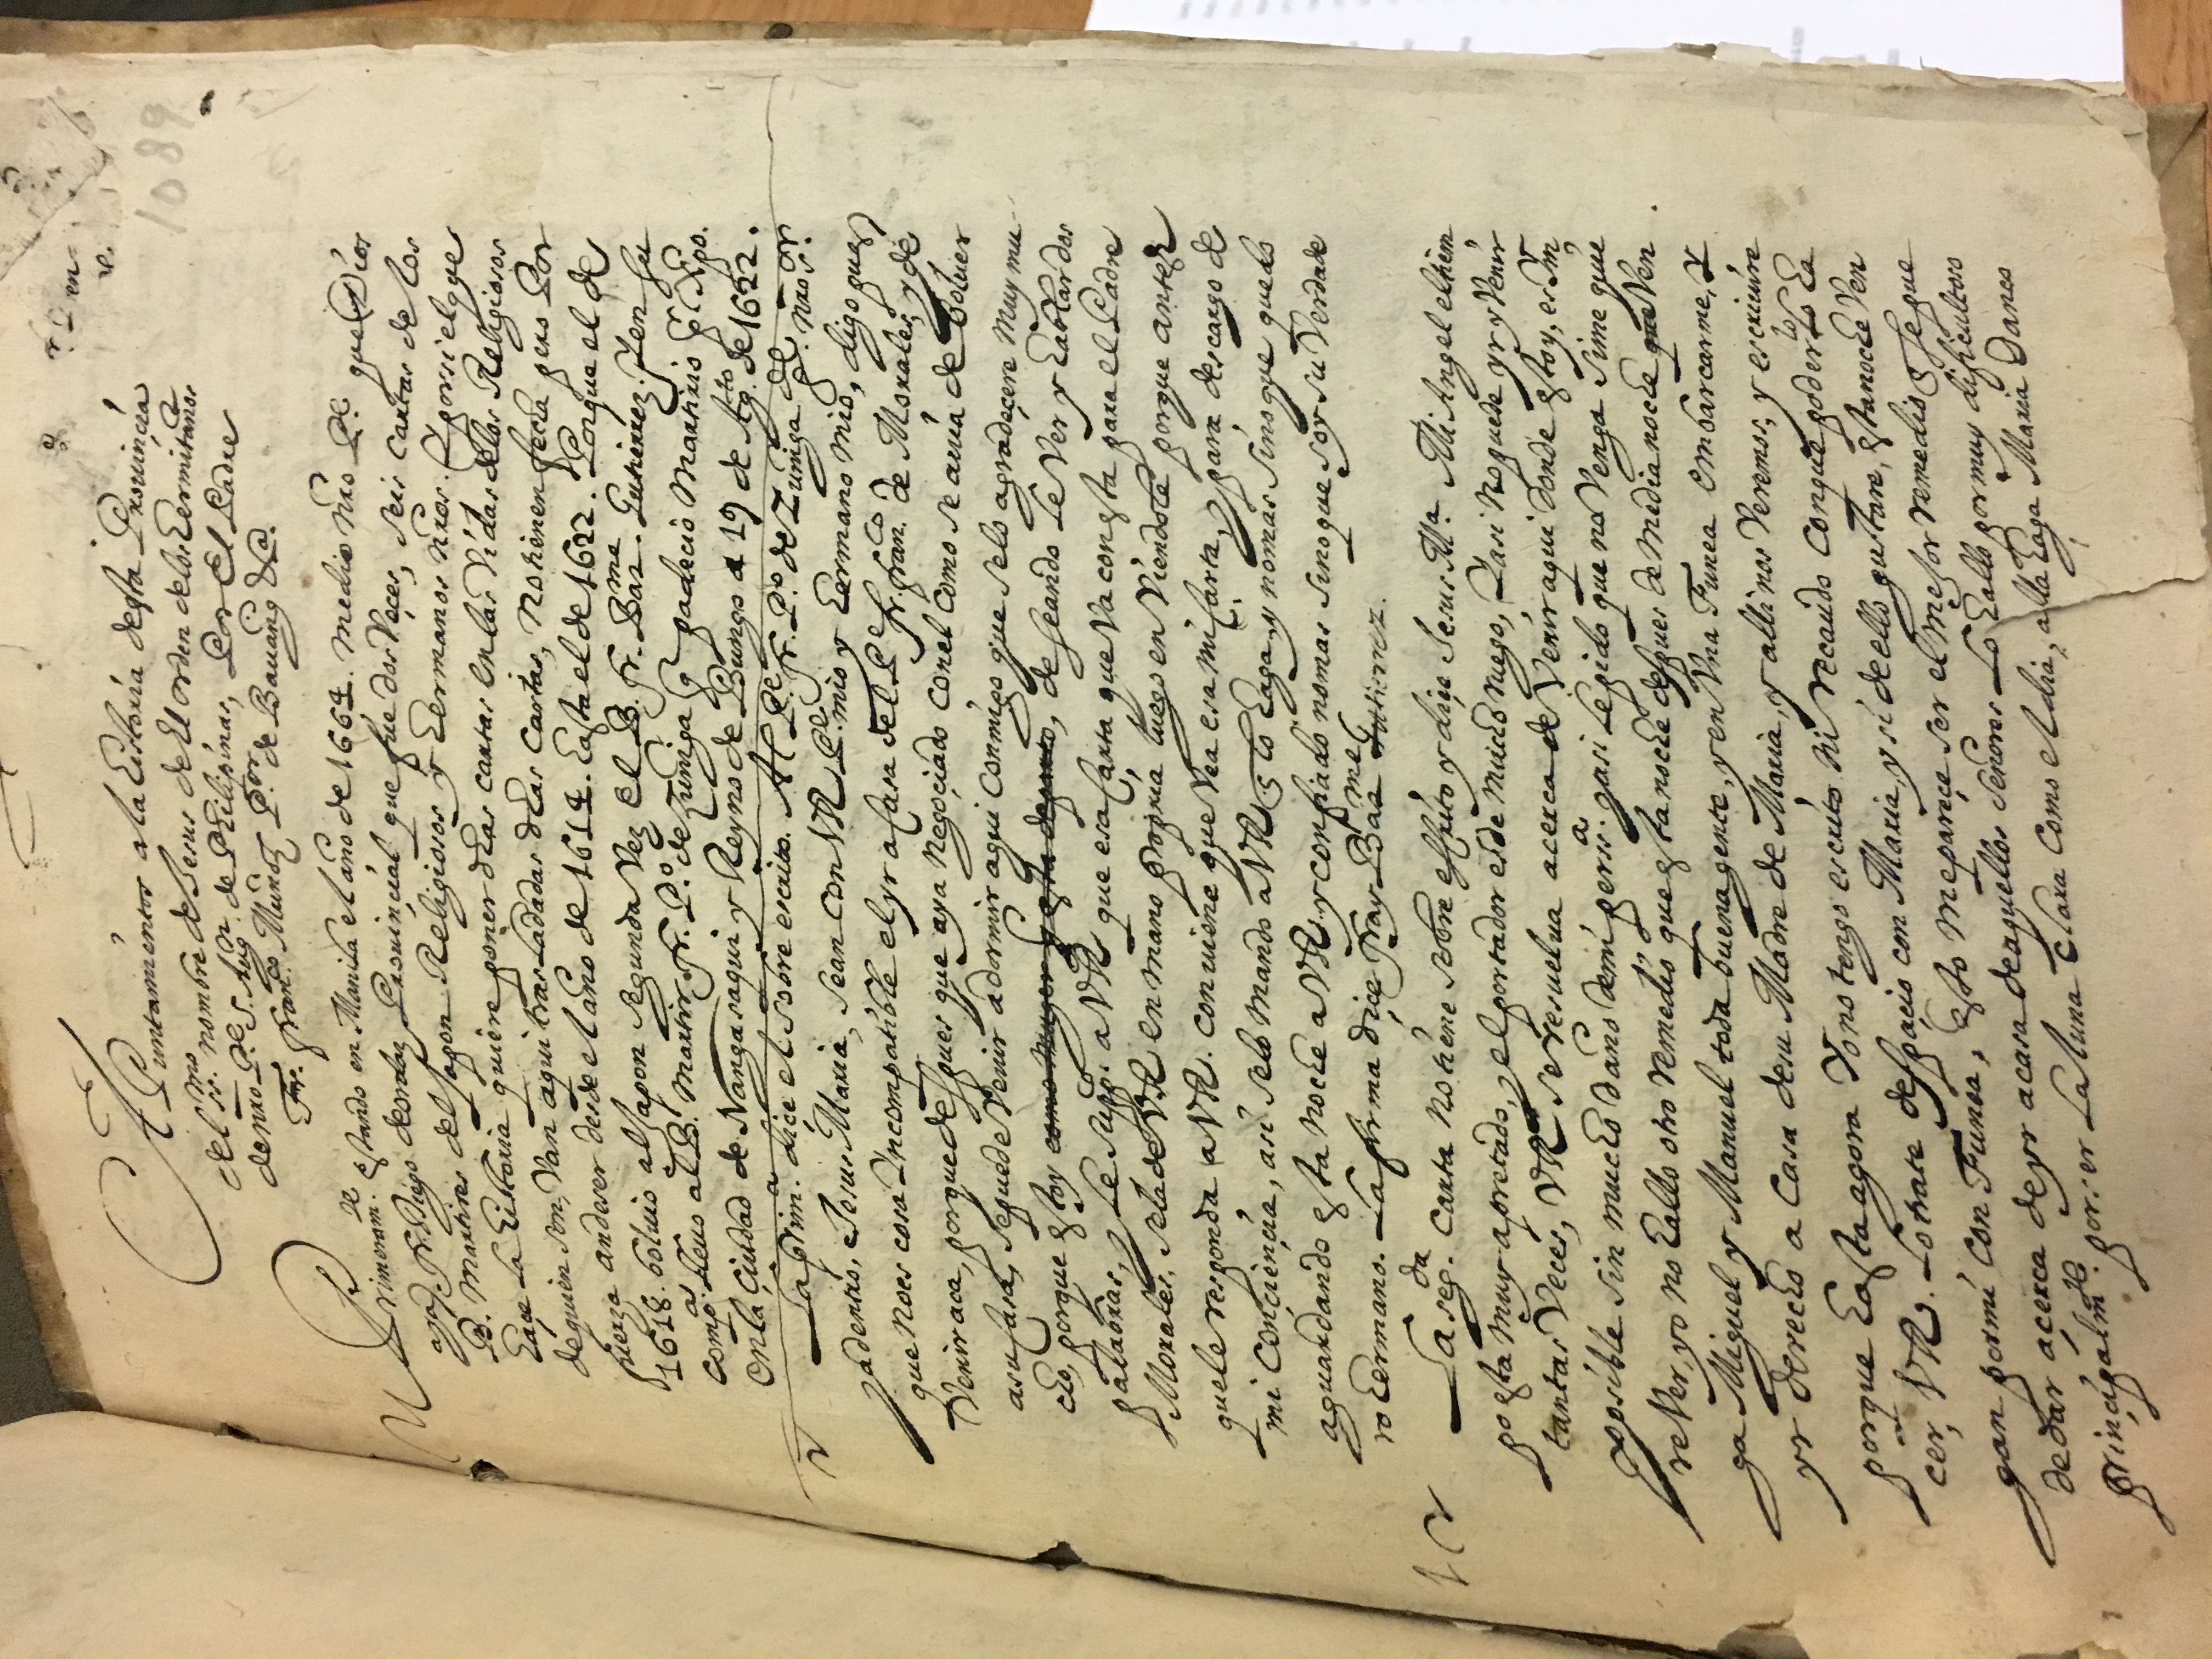 en
1089
APuntamientos a la historia desta Prouinçia
del ss.mo nombre de Jesus de El orden de los hermitaños
de nro P.e S. Aug.n de Philipinas, Por El Padre
Fr. fran.co Muñoz P.or de Bauang &a.
Primeram.te estando en Manila el año de 1664. me dio nro P.e que Dios
aya, fr. Diego de ordaz Prouinçial que fue dos Veçes, seis cartas de los
B. Martires del Japon Religiosos y hermanos nros. Y por si el que
haçe la historia quiere poner dhas cartas en las Vidas de los Religiosos
de quien son, Van aqui trasladadas dhas cartas, no tienen fecha pero Por
fuerza an de ser desde el año de 1614. hasta el de 1622. Porque el de
1618. boluio al Japon segunda Vez el B. fr. Bar.me Gutierrez. Y en su
comp.a lleuo al B. Martir fr. P.o de Zuñiga q padecio martirio pr Xpo.
en la çiudad de Nangasaqui y Reyno de Bungo a 19 de Ag.to de 1622.
La prim.a diçe el sobre escrito. Al P.e fr. P.o de Zuñiga gde. nro s.or
y adentro, Jesus Maria, sean con VR P.e mio y hermano mio, digo pues
que no es cosa Yncompatible el yr a casa del P.e fr. fran.co de Morales, y de
Venir aca, porque despues que aya negoçiado con el como se auia de boluer
a su casa, se puede Venir a dormir aqui conmigo que se lo agradeçere muy mu-
cho, porque estoy como muger q esta de parto, deseando le Ver y hablar dos
palabras, y le supp.co a VR que esa carta que Va con esta para el Padre
Morales, se la de VR en mano propria luego en Viendole porque antes
que le responda a VR. conuiene que Vea esa mi carta, y para descargo de
mi conçiençia, asi se lo mando a VR q lo haga, y no mas sino que quedo
aguardando esta noche a VR. y confiado no mas sino que soy su Verdade
ro hermano. La firma diçe fray Bar.me Gutierrez.
La seg.da carta no tiene sobre escrito y diçe Jesus M.a Mi Angel el tiem
po esta muy apretado, y el portador es de mucho ruego, Y asi no puede yr y Venir
tantas Veces, VR se resuelua acerca de Venir aqui donde estoy, es Ym
posible sin mucho daño de mi perss.a y asi le pido que no Venga si me quie
re Ver, yo no hallo otro remedio que esta noche despues de media noche que Ven
ga Miguel y Manuel toda buena gente, y en Vna Funea embarcarme, Y
yr derecho a casa de su Madre de Maria, y alli nos Veremos, y escriuire
porque hasta agora Yo no tengo escrito ni recaudo con que poder lo lo ha
cer, VR. lo trate despaçio con Maria, y si de ello gustare, esta noche Ven
gan por mi con Funea, esto me pareçe ser el mejor remedio q se pue
de dar açerca de yr a casa de aquellos señores lo hallo por muy dificultoso
prinçipalm.te por ser la luna clara como el dia, alla haga Maria Danes